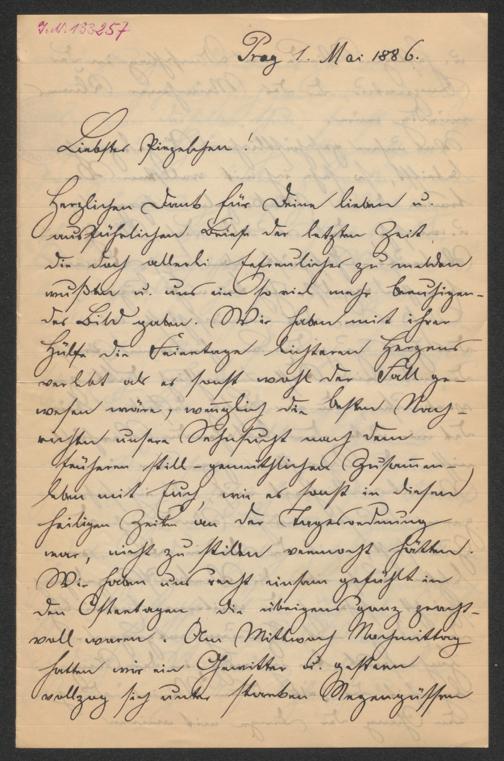 J.N. 133257
Prag 1. Mai 1886.
Liebstes Pinzelchen!
Herzlichen Dank für Deine lieben u.
ausführlichen Briefe der letzten Zeit,
die doch allerlei Erfreuliches zu melden
wußten u. uns ein so viel mehr beruhigen-
des Bild gaben. Wir haben mit ihrer
Hülfe die Feiertage leichteren Herzens
verlebt als es sonst wohl der Fall ge-
wesen wäre, wenglich die besten Nach-
richten unsere Sehnsucht nach dem
früheren still-gemüthlichen Zusammen-
leben mit Euch, wie es sonst in diesen
heiligen Zeiten an der Tagesordnung
war, nicht zu stillen vermocht hätten.
Wir haben uns recht einsam gefühlt in
den Ostertagen die übrigens ganz pracht-
voll waren. Am Mittwoch Nachmittag
hatten wir ein Gewitter u. gestern
vollzog sich unter starken Regengüssen